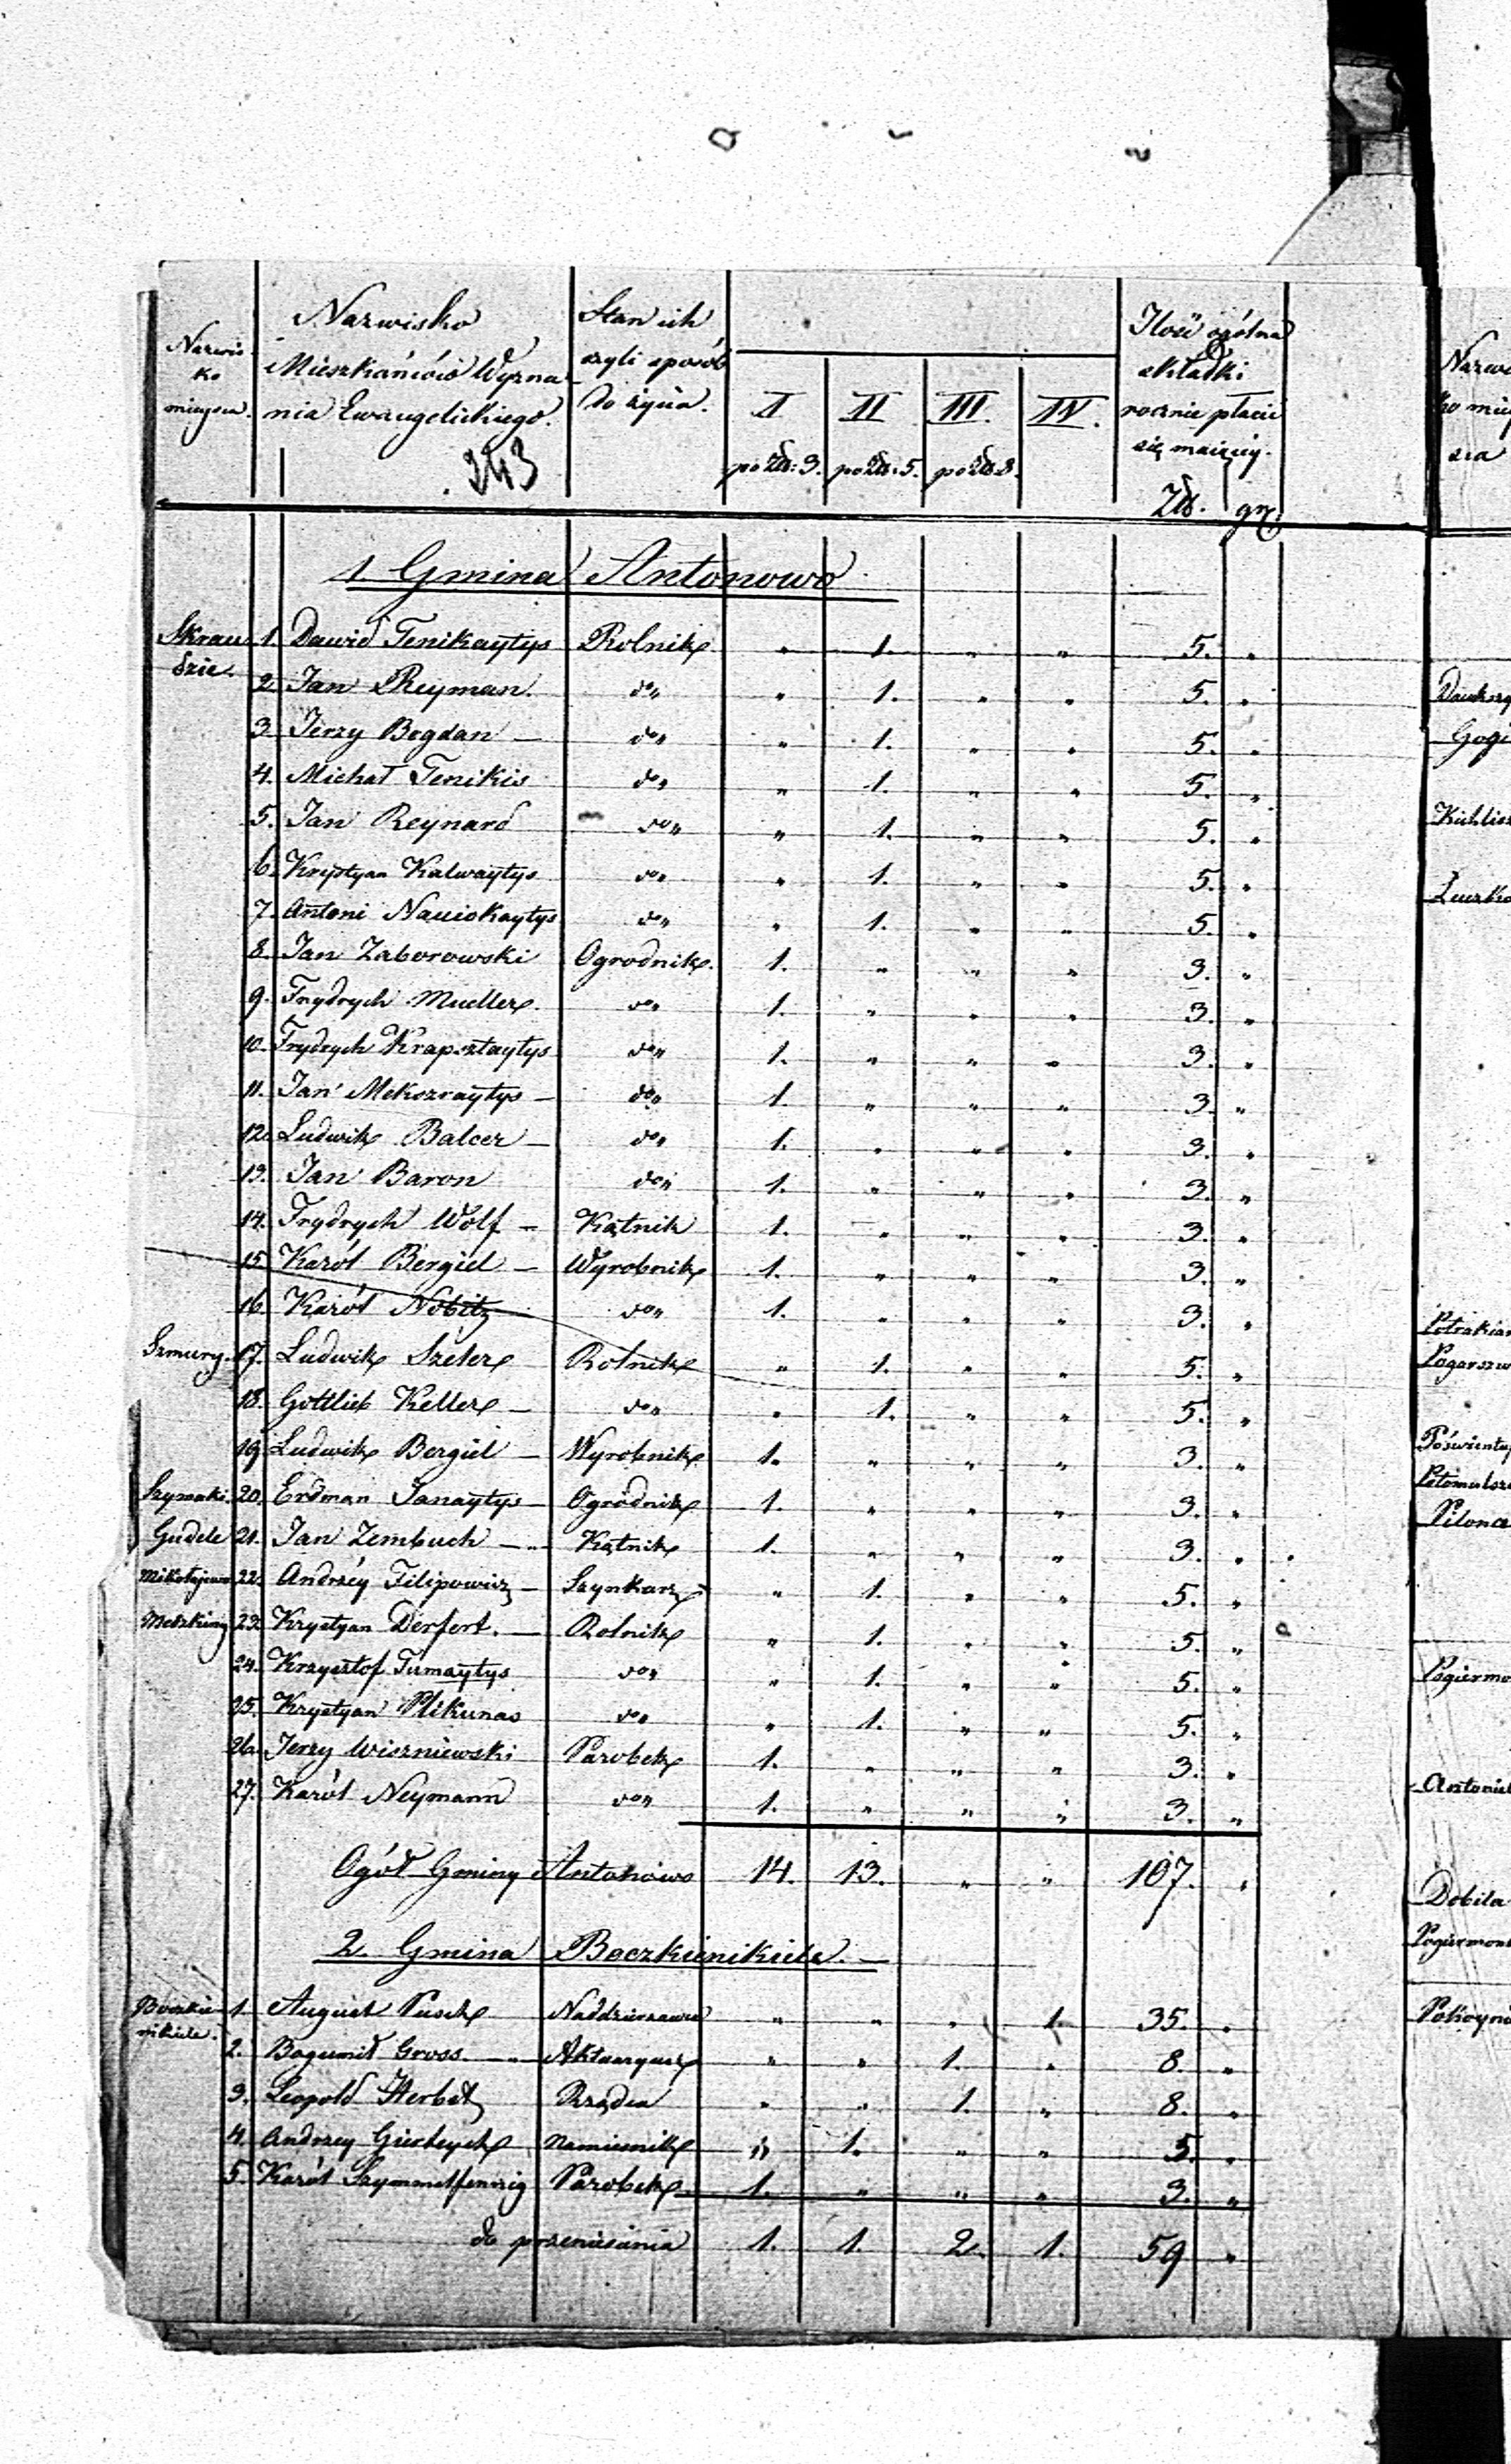 Nazwisko miejsca. Nazwisko Mieszkańców Wyznania Ewangelickiego. Stan ich czyli sposób do życia. I po Złt: 3. II po Złt: 5. III po Złt: 8. IV. Ilość ogólna składki rocznie płacić się maiącey. Złt. gr.
243
1. Gmina Antonowo
Skrau 1. Dawid Tenikaytys Rolnik " 1. " " 5. "
dzie. 2. Jan Reyman do " 1. " " 5. "
3. Jerzy Bogdan — do " 1. " " 5. "
4. Michał Tenikis do " 1. " " 5. "
5. Jan Reynard do " 1. " " 5. "
6. Krystyan Kalwaytys do " 1. " " 5. "
7. Antoni Nauiokaytys do " 1. " " 5. "
8. Jan Zaborowski Ogrodnik 1. " " " 3. "
9. Frydrych Mueller do 1. " " " 3. "
10. Frydrych Krapsztaytys do 1. " " " 3. "
11. Jan Mekszraytys — do 1. " " " 3. "
12. Ludwik Balcer — do 1. " " " 3. "
13. Jan Baron do 1. " " " 3. "
14. Frydrych Wolf — Kątnik 1. " " " 3. "
15. Karól Bergiel — Wyrobnik 1. " " " 3. "
16. Karól Nobitz do 1. " " " 3. "
Szmury. 17. Ludwik Szeler Rolnik " 1. " " 5. "
18. Gottlieb Keller — do " 1. " " 5. "
19. Ludwik Bergiel — Wyrobnik 1. " " " 3. "
Szymaki. 20. Erdman Janaytys — Ogrodnik 1. " " " 3. "
Gudele 21. Jan Zembuch — Kątnik 1. " " " 3. "
Mikołajewo 22. Andrzéy Filipowicz — Szynkarz " 1. " " 5. "
23. Krystyan Derfert. — Rolnik " 1. " " 5. "
24. Krzysztof Tumaytys do " 1. " " 5. "
25. Krystyan Plikunas do " 1. " " 5. "
26. Jerzy Wiszniewski Parobek 1. " " " 3. "
27. Karól Neymann do 1. " " " 3. "
Ogół Gminy Antonowo 14. 13. " " 107. "
2. Gmina Boczkienikiele. —
1. August Pusch " " " 1. 35. "
2. Bogumił Gross — Aktuaryusz " " 1. " 8. "
3. Leopold Herbst Rządca " " 1. " 8. "
4. Andrzey Namiesnik " 1. " " 5. "
5. Karól Szymmelfennig Parobek 1. " " " 3. "
do przeniesienia 1. 1. 2. 1. 59 "